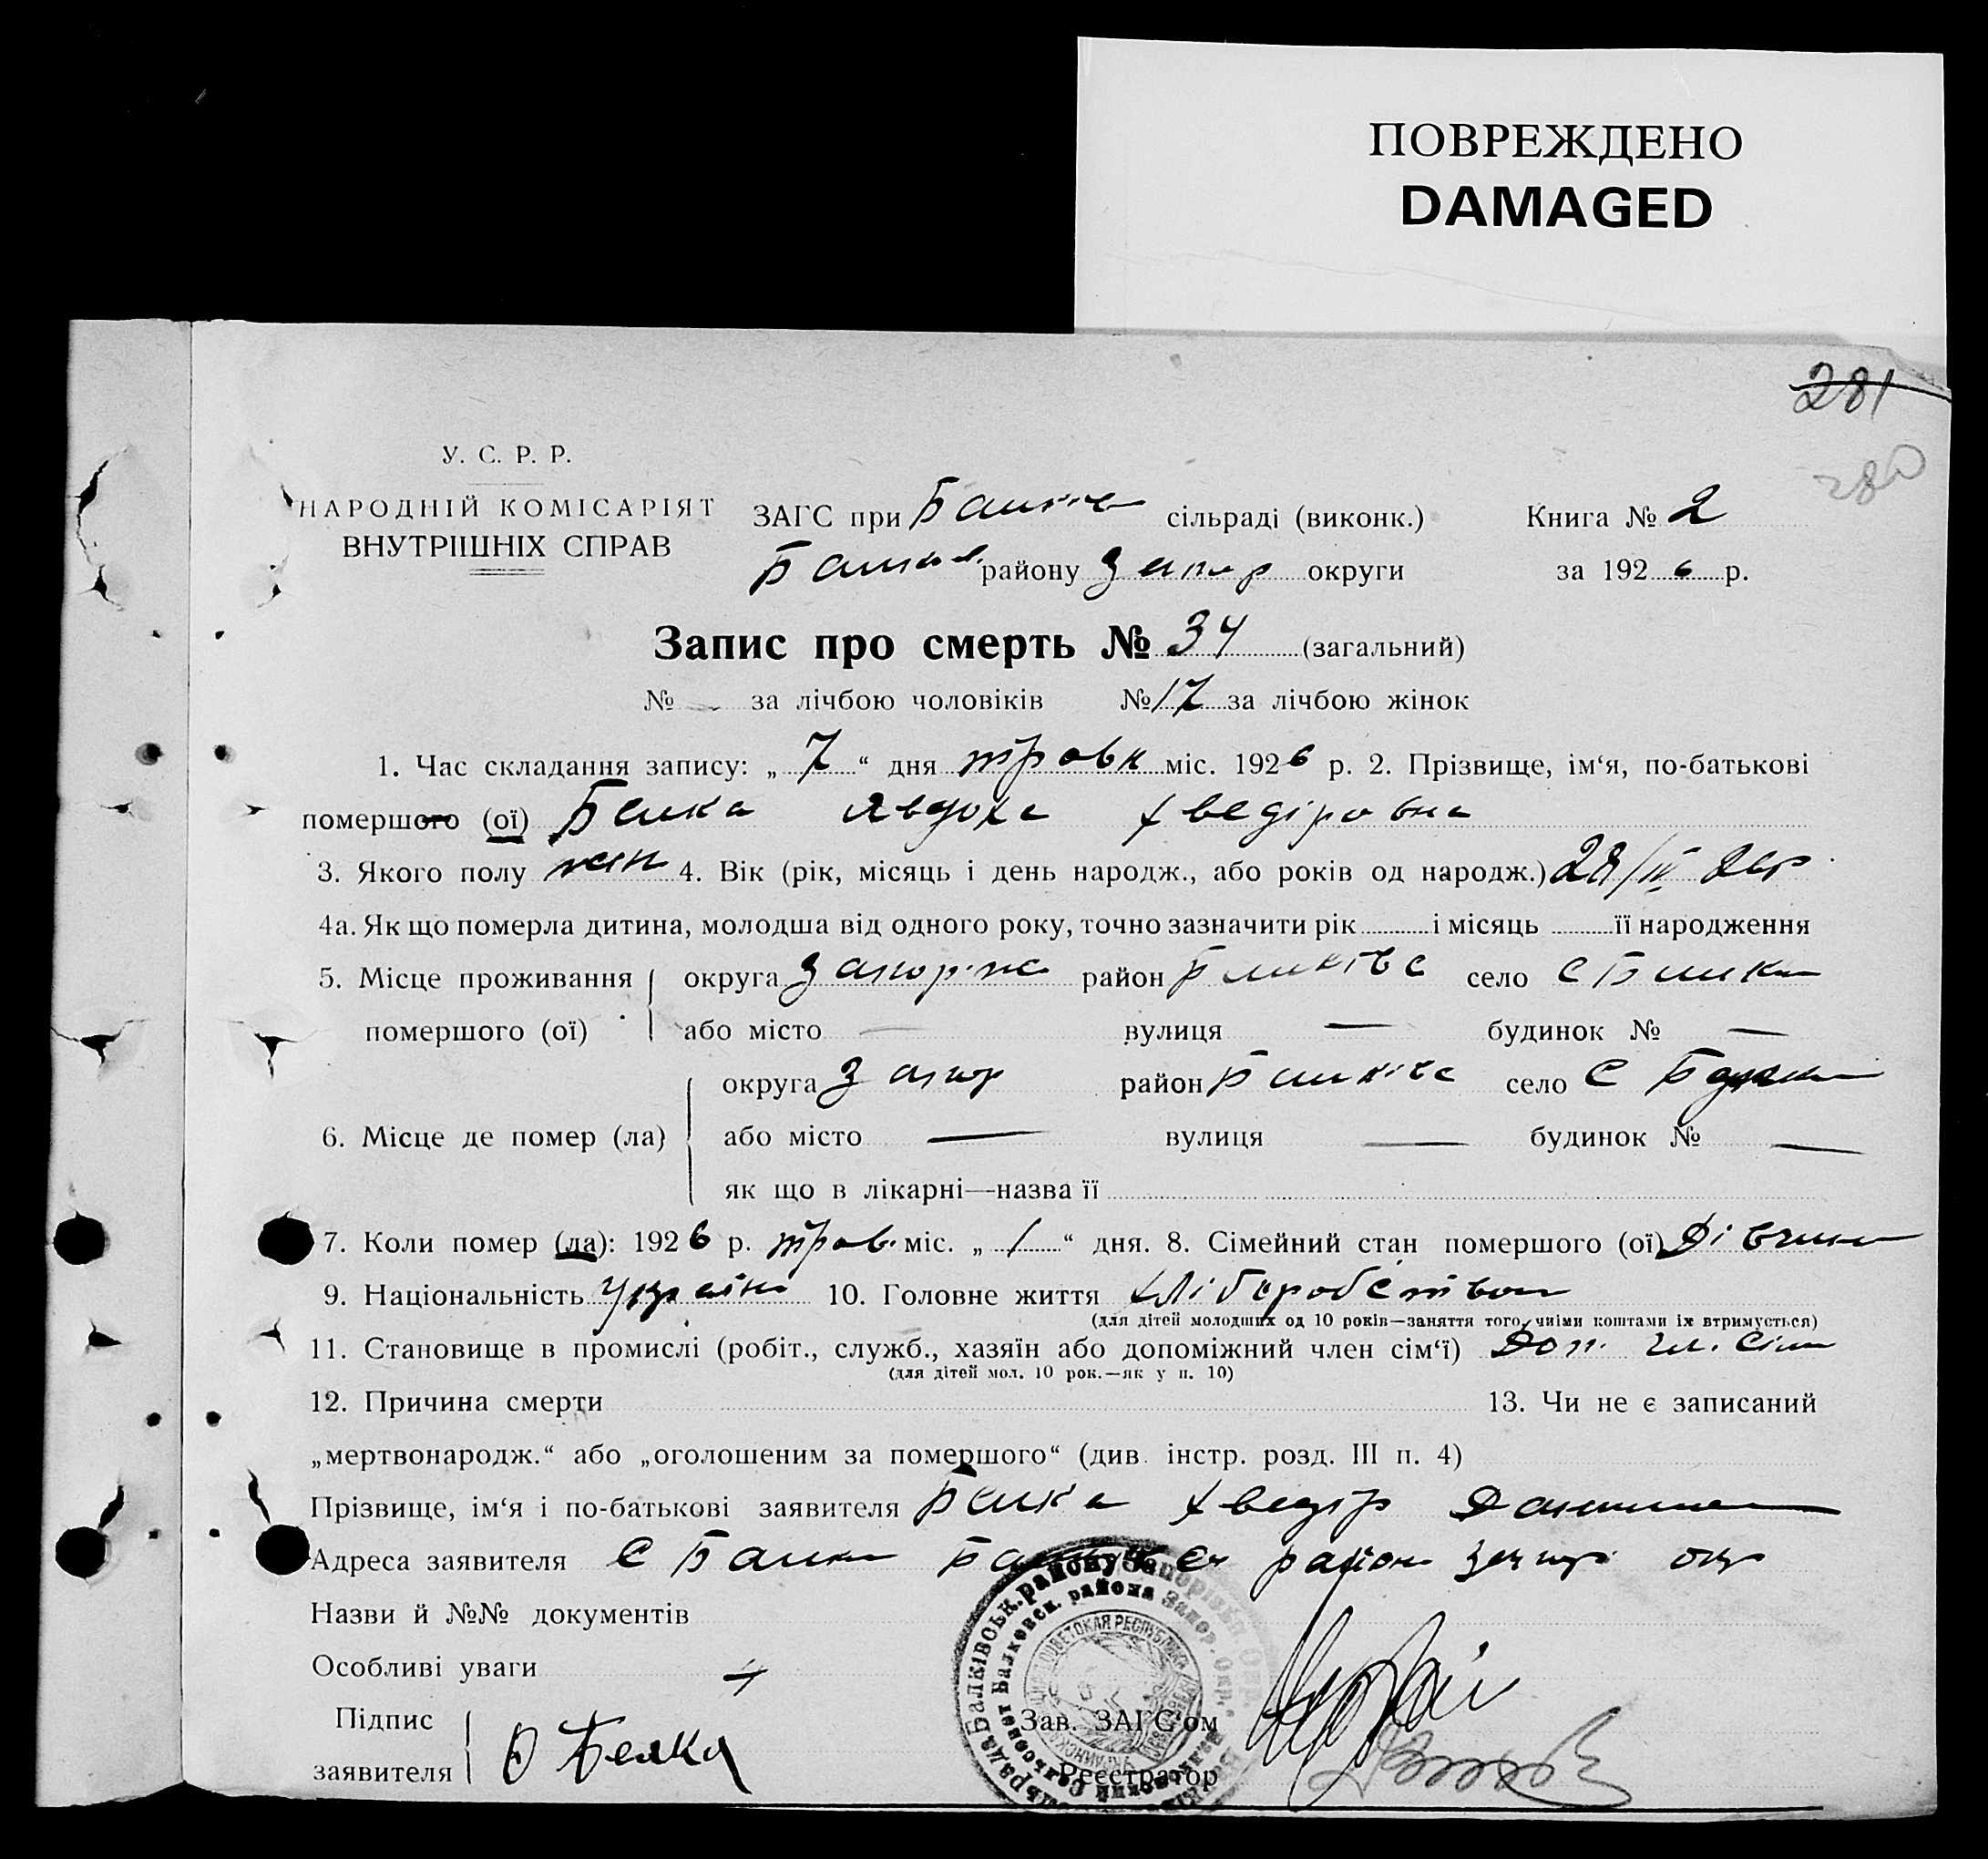 ПОВРЕЖДЕНО
DAMAGED
281
280
У. С. Р. Р.
НАРОДНІЙ КОМІСАРІЯТ
ВНУТРІШНІХ СПРАВ
ЗАГС при сільраді (виконк.) Книга № 2
району Запор округи за 1926 р.
Запис про смерть № 34 (загальний)
№ — за лічбою чоловіків № 17 за лічбою жінок
1. Час складання запису: „7“ дня трав міс. 1926 р. 2. Прізвище, ім‘я, по-батькові
помершого (ої) Белка Явдоха Хведіровна
3. Якого полу жін 4. Вік (рік, місяць і день народж., або років од народж.) 28/IV
4а. Як що померла дитина, молодша від одного року, точно зазначити рік і місяць її народження
5. Місце проживання округа Запоріж район село С Балки
помершого (ої) або місто — вулиця — будинок № —
округа Запор район село С Балки
6. Місце де помер (ла) або місто — вулиця — будинок № —
як що в лікарні—назва її
7. Коли помер (ла): 1926 р. трав. міс. „1“ дня. 8. Сімейний стан помершого (ої) Дівчина
9. Національність Україн 10. Головне життя хліборобство
(для дітей молодших од 10 років—заняття того, чиїми коштами їх втримується)
11. Становище в промислі (робіт., служб., хазяїн або допоміжний член сім‘ї) Доп. чл. сім
(для дітей мол. 10 рок.—як у п. 10)
12. Причина смерти 13. Чи не є записаний
„мертвонародж.“ або „оголошеним за помершого“ (див. інстр. розд. III п. 4)
Прізвище, ім‘я і по-батькові заявителя Белка Хведір
Адреса заявителя С Балки район Запор окр
Назви й №№ документів
Особливі уваги
Підпис
заявителя Белка
Зав. ЗАГС‘ом
Реєстратор
Балківськ. району Запорізьк.
Балковск. района Запор. Окр.